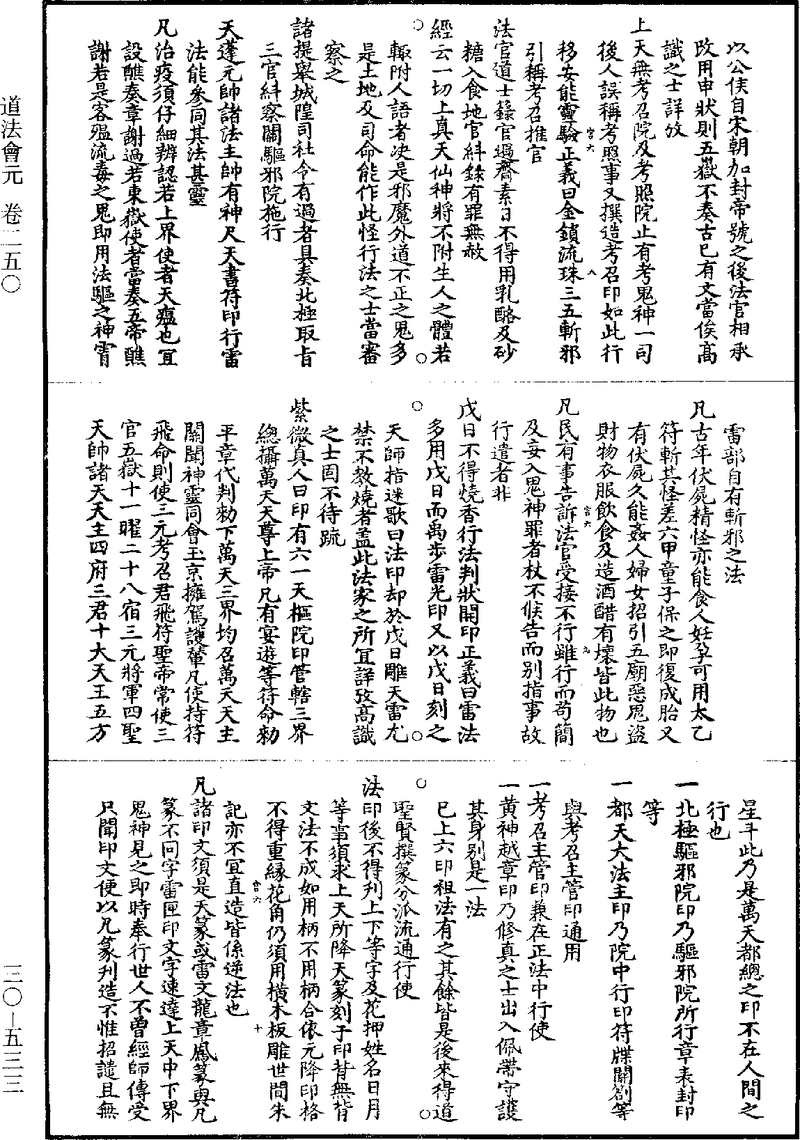 道法會元　卷二五〇
三〇—五三三
以公侯自宋朝加封帝號之後法官相承
改用申狀則五嶽不奏古已有文當俟高
識之士詳攷
上天無考召院及考照院止有考鬼神一司
後人誤稱考照事又撰造考召印如此行
移安能靈驗正義曰金鎖流珠三五斬邪
引稱考召推官
法官道士籙官遇齋素日不得用乳酪及砂
糖入食地官糾錄有罪無赦
經云一切上真天仙神將不附生人之體若
輒附人語者決是邪魔外道不正之鬼多
是土地及司命能作此怪行法之士當審
察之
諸提舉城隍司社令有過者具奏北極取旨
三官糾察關驅邪院施行
天蓬元帥諸法主帥有神尺天書符印行雷
法能參同其法甚靈
凡治疫須仔細辨認若上界使者天瘟也宜
設醮奏章謝過若東嶽使者當奏五帝醮
謝若是客瘟流毒之鬼即用法驅之神霄
雷部自有斬邪之法
凡古年伏屍精怪亦能食人妊孕可用太乙
符斬其怪差六甲童子保之即復成胎又
有伏屍久能姦人婦女招引五廟惡鬼盜
財物衣服飲食及造酒醋有壞皆此物也
凡民有事告訴法官受接不行雖行而苟簡
及妄入鬼神罪者杖不候告而別指事故
行遣者非
戊日不得燒香行法判狀開印正義曰雷法
多用戊日而禹步雷光印又以戊日刻之
天師指迷歌曰法印却於戊日雕天雷尤
禁不教燒者蓋此法家之所宜詳攷高識
之士固不待疏
紫微真人曰印有六一天樞院印管轄三界
總攝萬天天尊上帝凡有宴遊等符命勑
平章代判勑下萬天三界均召萬天天主
關聞神靈同會玉京擁駕護輦凡使持符
飛命則使三元考召君飛符聖帝常使三
官五嶽十一曜二十八宿三元將軍四聖
天帥諸天天主四府三君十大天王五方
星斗此乃是萬天都總之印不在人間之
行也
一北極驅邪院印乃驅邪院所行章表封印
等
一都天大法主印乃院中行印符牒關劄等
與考召主管印通用
一考召主管印兼在正法中行使
一黃神越章印乃修真之士出入佩帶守護
其身別是一法
已上六印祖法有之其餘皆是後來得道
聖賢撰篆分派流通行使
法印後不得刋上下等字及花押姓名日月
等事須求上天所降天篆刻于印背無背
文法不成如用柄不用柄合依元降印格
不得重緣花角仍須用橫木板雕世間朱
記亦不宜直造皆係逆法也
凡諸印文須是天篆或雷文龍章鳳篆與凡
篆不同字雷匣印文字速達上天中下界
鬼神見之即時奉行世人不曾經師傳受
只聞印文便以凡篆刋造不惟招譴且無